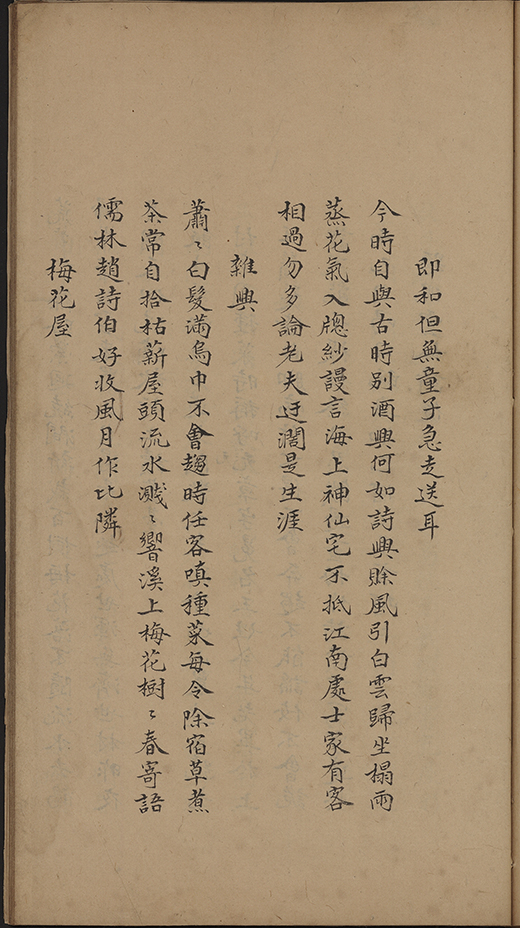 即和但無童子急走送耳
今時自與古時别酒興何如詩興賒風引白雲歸坐榻雨
蒸花氣入牕紗謾言海上神仙宅不抵江南處士家有客
相過勿多論老夫迂濶是生涯
雜興
蕭〻白髮滿烏巾不會趨時任客嗔種菜每令除宿草煮
茶常自拾枯薪屋頭流水濺〻響溪上梅花樹〻春寄語
儒林趙詩伯好收風月作比隣
梅花屋